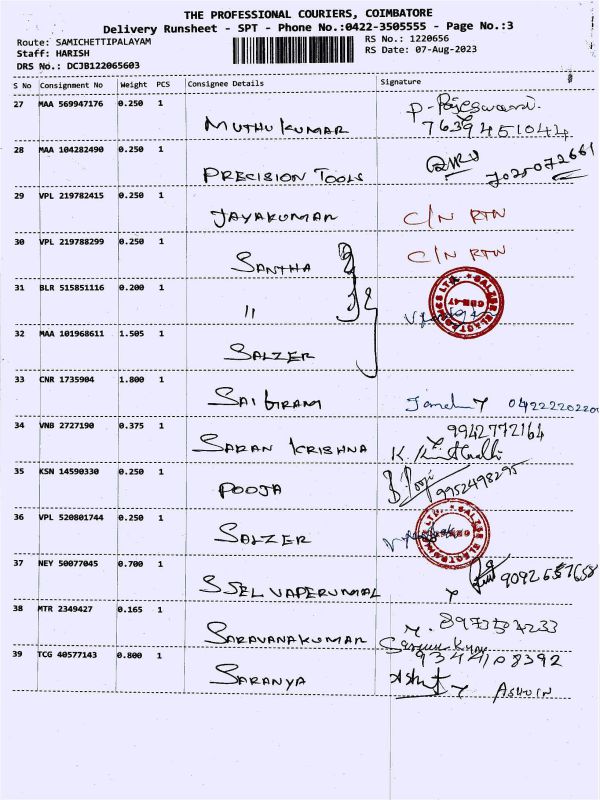 THE PROFESSIONAL COURIERS, COIMBATORE
Delivery Runsheet - SPT - Phone No.:0422-3505555 - Page No.:3
Route: SAMICHETTIPALAYAM
Staff: HARISH
DRS No.: DCJB122065603
RS No.: 1220656
RS Date: 07-Aug-2023
S No Consignment No Weight PCS Consignee Details Signature
27 MAA 569947176 0.250 1
MUTHU KUMAR 7639451044
28 MAA 104282490 0.250 1
PRECISION TOOLS 7025072661
29 VPL 219782415 0.250 1
JAYAKUMAR C/N RTN
30 VPL 219788299 0.250 1
SANTHA C/N RTN
31 BLR 515851116 0.200 1
"
SALZER ELECTRONICS LTD. CBE-47
32 MAA 101968611 1.505 1
SALZER
33 CNR 1735904 1.800 1
SAI GIRAM
34 VNB 2727190 0.375 1
SARAN KRISHNA 9942772164
35 KSN 14590330 0.250 1
POOJA B. Pooji 9952498295
36 VPL 520801744 0.250 1
SALZER
SALZER ELECTRONICS LTD.
37 NEY 50077045 0.700 1
SSEL VAPERUMAL
38 MTR 2349427 0.165 1
SARAVANAKUMAR
39 TCG 40577143 0.800 1
9344108392
SARANYA ASHWIN